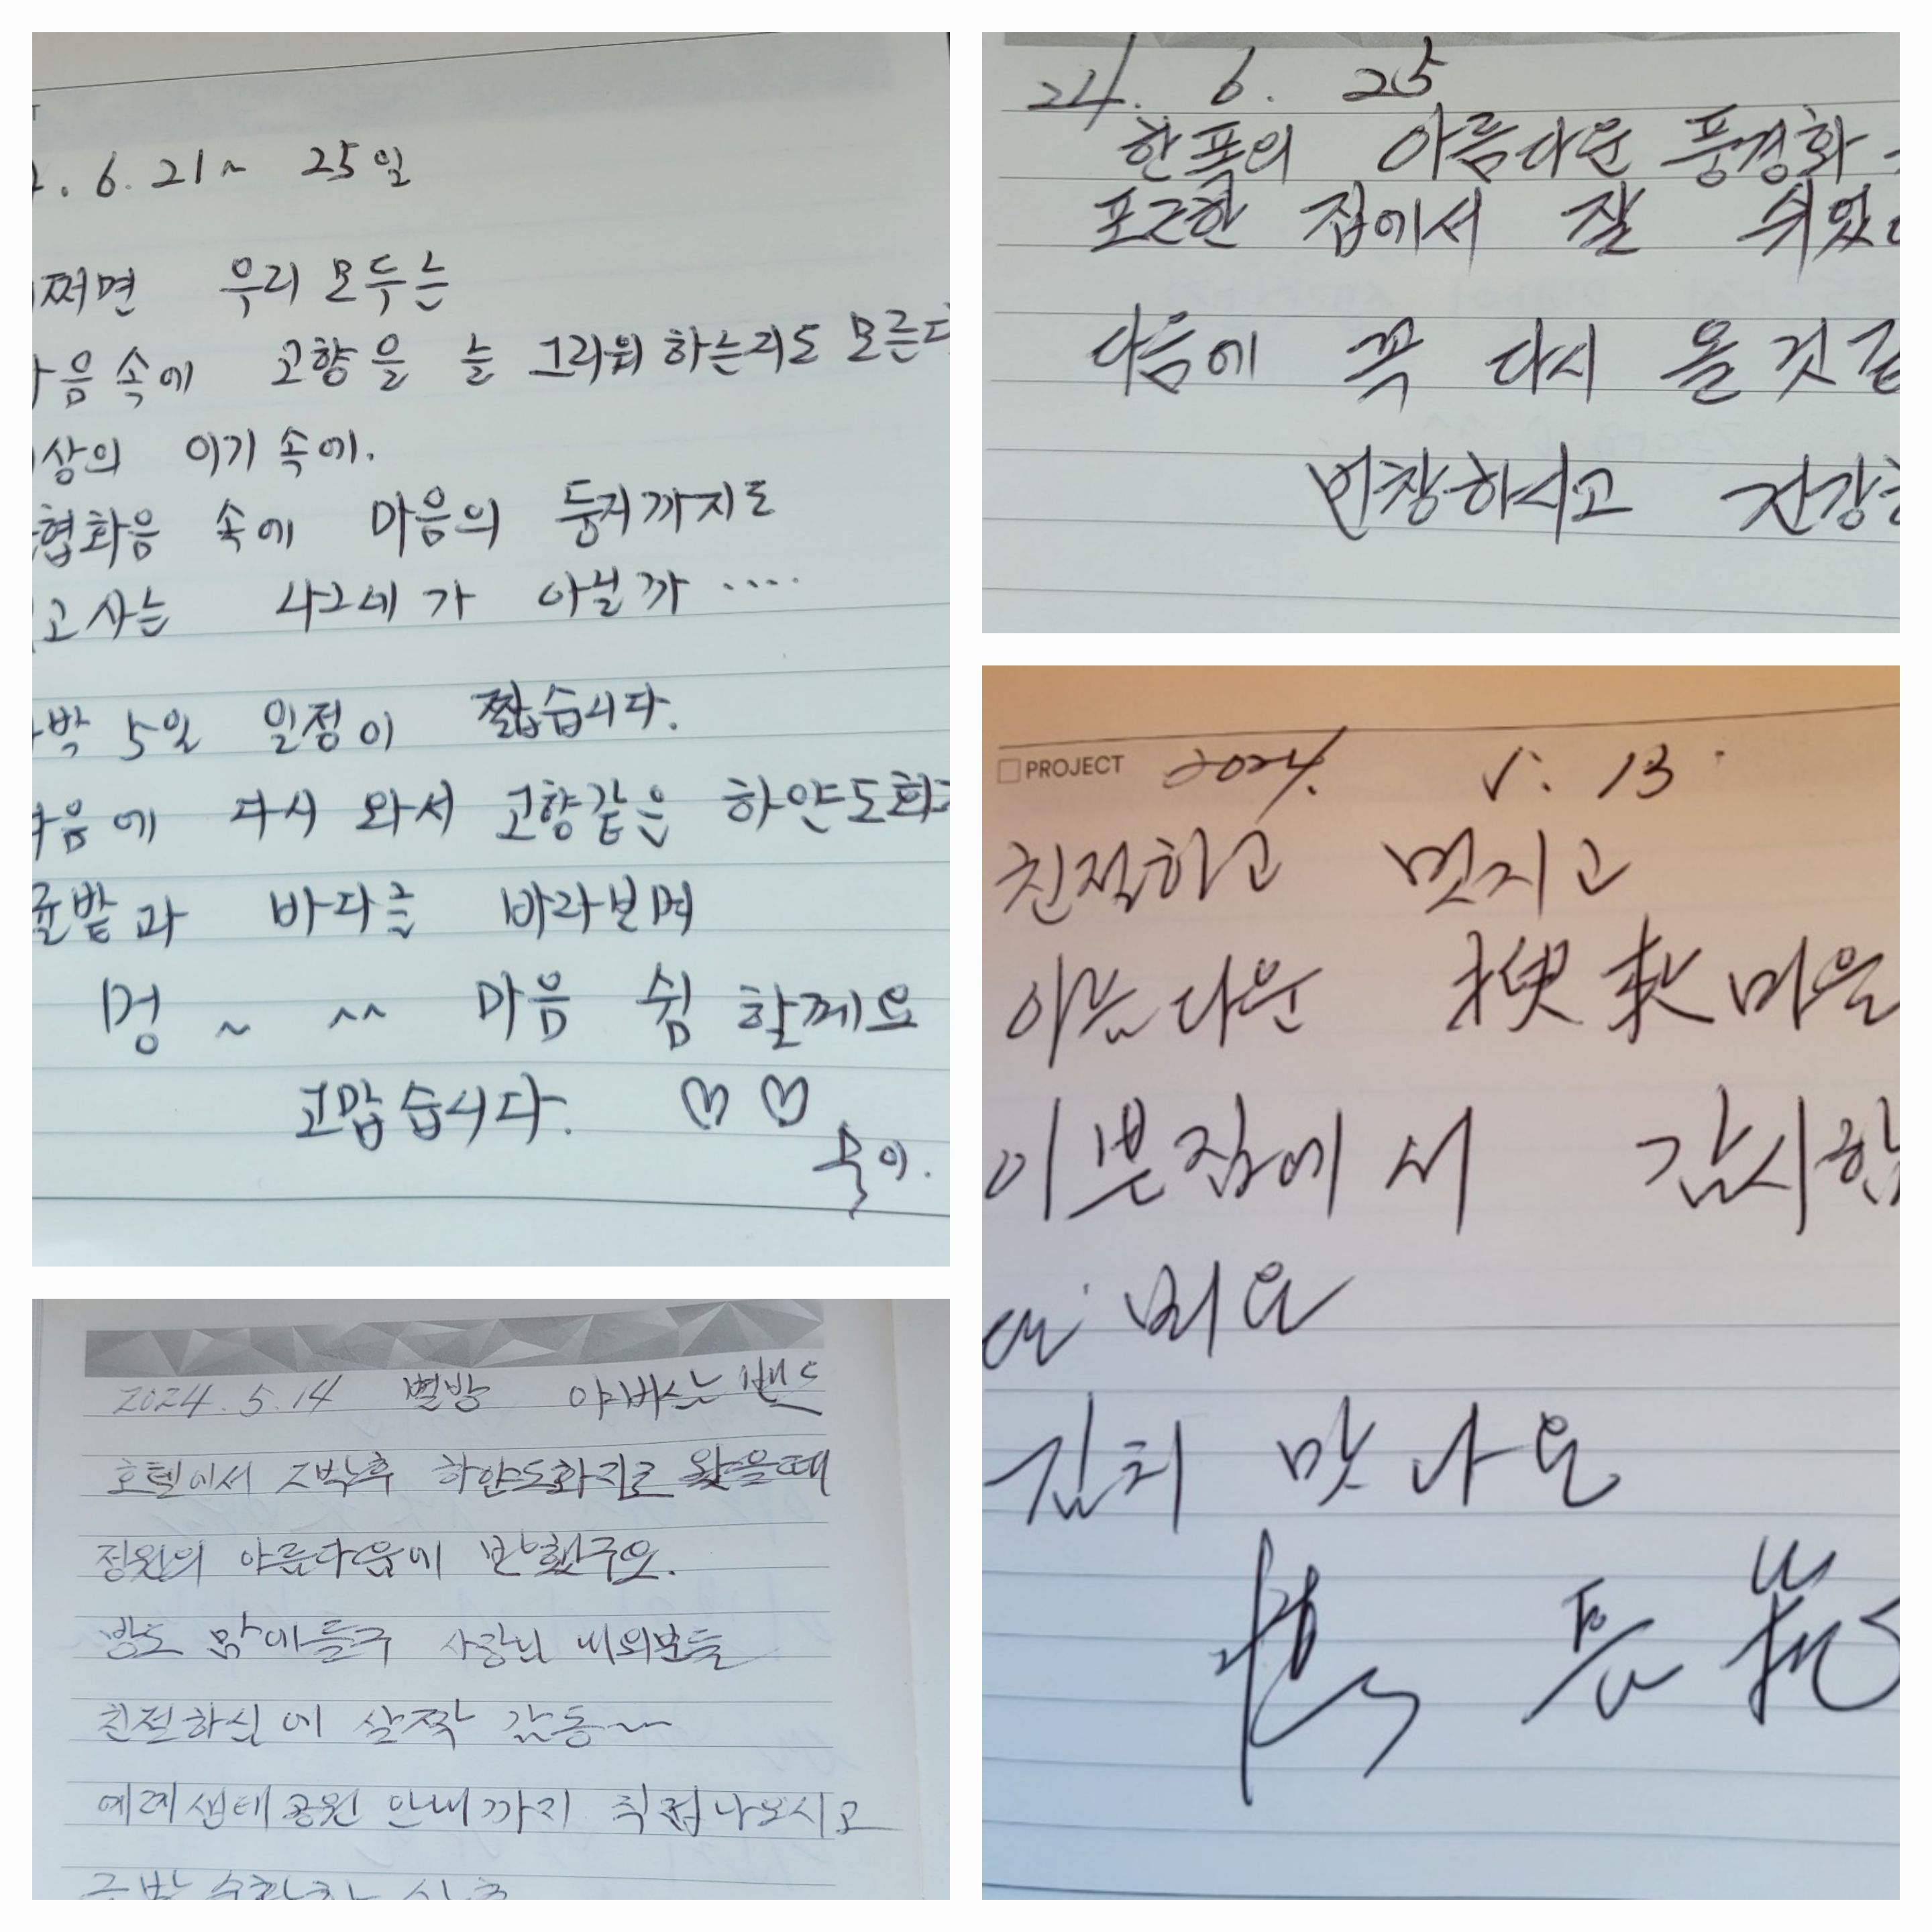 . 6. 21 ~ 25일
쩌면 우리 모두는
음속에 고향을 늘 그리워 하는지도 모른다
상의 이기 속에.
협화음 속에 마음의 둥지까지도
고 사는 나그네가 아닐까 ....
박 5일 일정이 짧습니다.
음에 다시 와서 고향같은 하얀도화
귤밭과 바다를 바라보며
멍 ~ ^^ 마음 쉼 할께요
고맙습니다. ♡♡
24. 6. 25
한폭의 아름다운 풍경화
포근한 집에서 잘 쉬었
다음에 꼭 다시 올것같
번창하시고 건강
PROJECT 2024. 5. 13
친절하고 멋지고
아름다운 마을
이쁜집에서 감사
김치 맛나요
2024. 5. 14 별방
호텔에서 2박후 하얀도화지로 왔을때
정원의 아름다움에 반했구요.
방도 맘에들구 사장님 내외분들
친절하심에 살짝 감동~~
예례생태공원 안내까지 직접나오시고